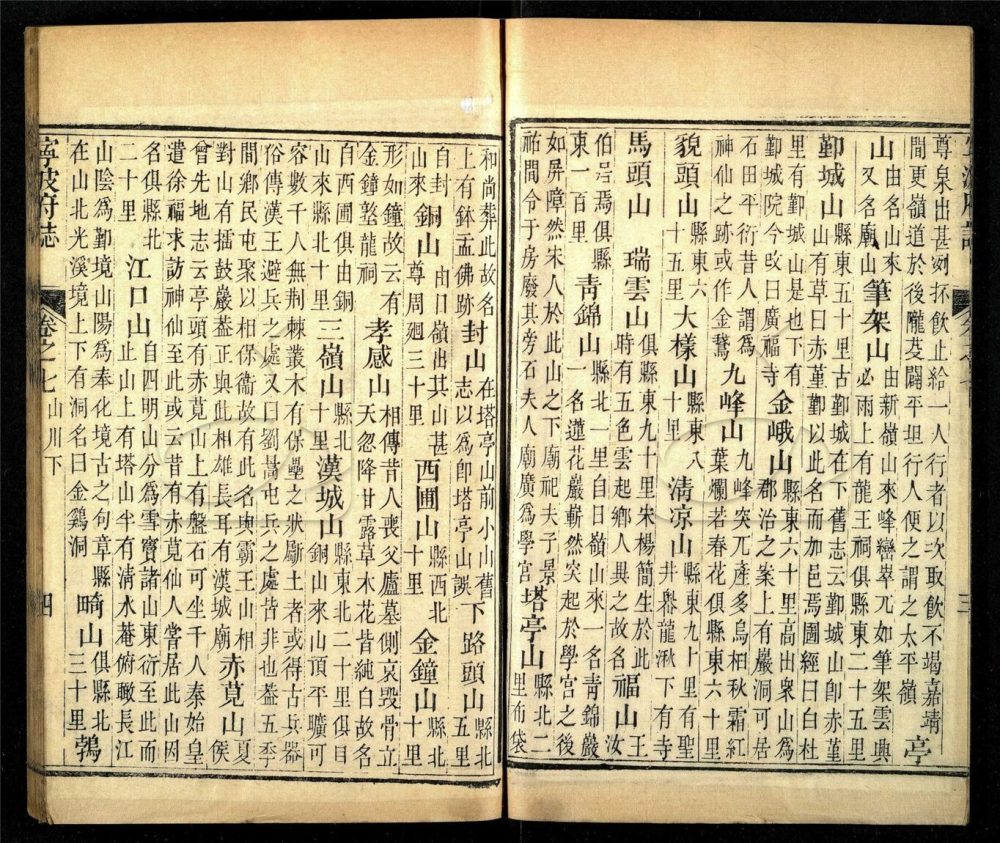 尊泉出甚冽抔飲止給一人行者以次取飲不竭嘉靖
間更嶺道於後隴芟闢平坦行人便之謂之太平嶺 亭
山由名山來又名廟山 筆架山由新嶺山來峰巒崒兀如筆架雲興必雨上有龍王祠俱縣東二十五里
鄞城山縣東五十里古鄞城在下舊志云鄞城山即赤堇山有草曰赤堇鄞以此名而加邑焉圖經曰白杜
里有鄞城山是也鄞城院今改曰廣福寺 金峨山縣東六十里高出衆山爲郡治之案上有巖洞可居
石田平衍昔人謂爲神仙之跡或作金鵞 九峰山九峰突兀產多烏桕秋霜紅葉爛若春花俱縣東六十里
貌頭山縣東六十五里 大樣山縣東八十里 清涼山縣東九十里有聖井舉龍湫下有寺
馬頭山 瑞雲山俱縣東九十里宋楊簡生於此時有五色雲起鄉人異之故名 福山王汝
伯呂焉俱縣東一百里 青錦山縣北一里自日嶺山來一名青錦巖一名蓮花巖嶄然突起於學宮之後
如屏障然宋人於此山之下廟祀夫子景祐間令于房廢其旁石夫人廟廣爲學宮 塔亭山縣北二里布袋
和尚葬此故名上有鉢盂佛跡 封山在塔亭山前小山舊志以爲卽塔亭山誤 下路頭山縣北五里
自封山來 銅山由日嶺出其山甚尊周廻三十里 西圃山縣西北十里 金鐘山縣北十里
形如鐘故云有金鐘墪龍祠 孝感山相傳昔人喪父廬墓側哀毀骨立天忽降甘露草木花皆純白故名
自西圃俱由銅山來縣北十里 三嶺山縣北十里 漢城山縣東北二十里俱自銅山來山頂平曠可
容數千人無荆棘叢木有保壘之狀斸土者或得古兵器
俗傳漢王避兵之處又曰劉暠屯兵之處皆非也葢五季
間鄉民屯聚以相保衞故有此名與霸王山相對山有擂鼓巖葢正與此相雄長耳有漢城廟 赤莧山夏侯
曾先地志云亭頭有赤莧山上有盤石可坐千人秦始皇
遣徐福求訪神仙至此或云昔有赤莧仙人嘗居此山因
名俱縣北二十里 江口山自四明山分爲雪竇諸山東衍至此而止山上有塔山半有清水菴俯瞰長江
山陰爲鄞境山陽爲奉化境古之句章縣在山北光溪境上下有洞名曰金鷄洞 畸山俱縣北三十里 鶉
寧波府誌 卷之七 山川下 四